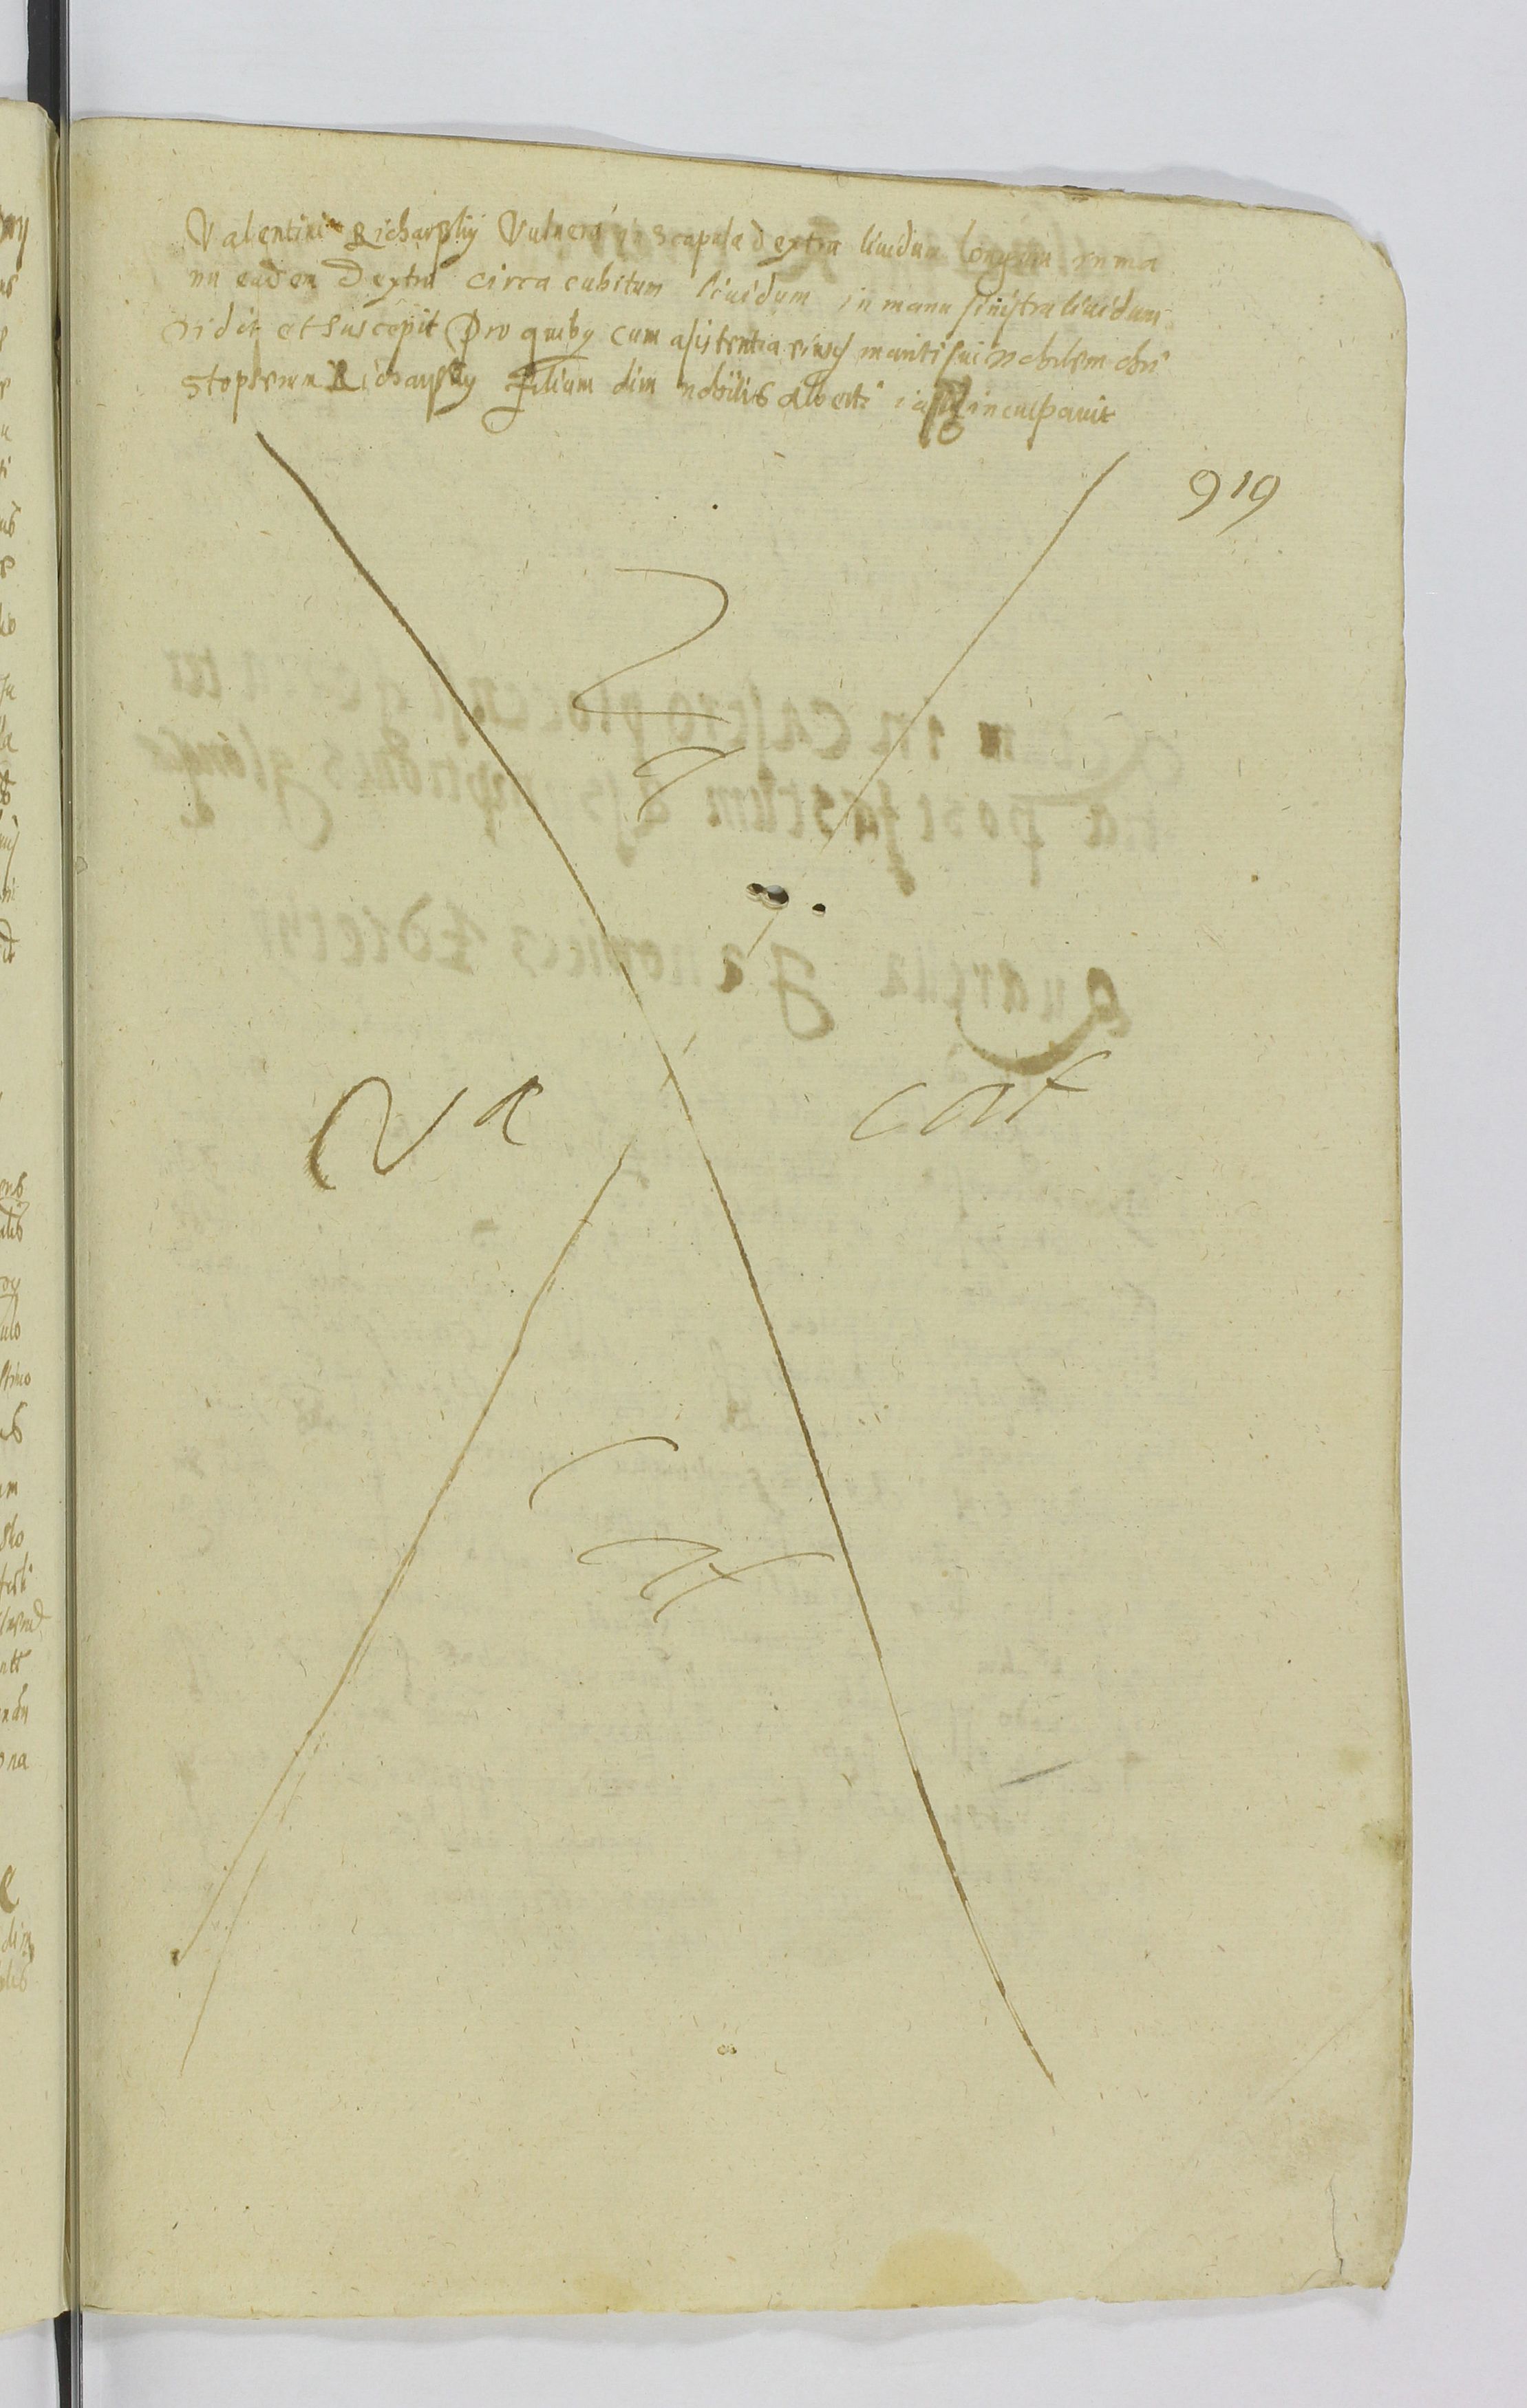 Valentini Richarsky Vulnera in scapula dextra liuidum longum in ma
nu eadem Dextra circa cubitum liuidum in manu sinistra liuidum
vidit et suscepit Pro quibg cum asistentia eiusd mariti sui Nobilem chri
stopherum Richarsky Filium olim nobilis Alberti inculpauit
919
Va cat